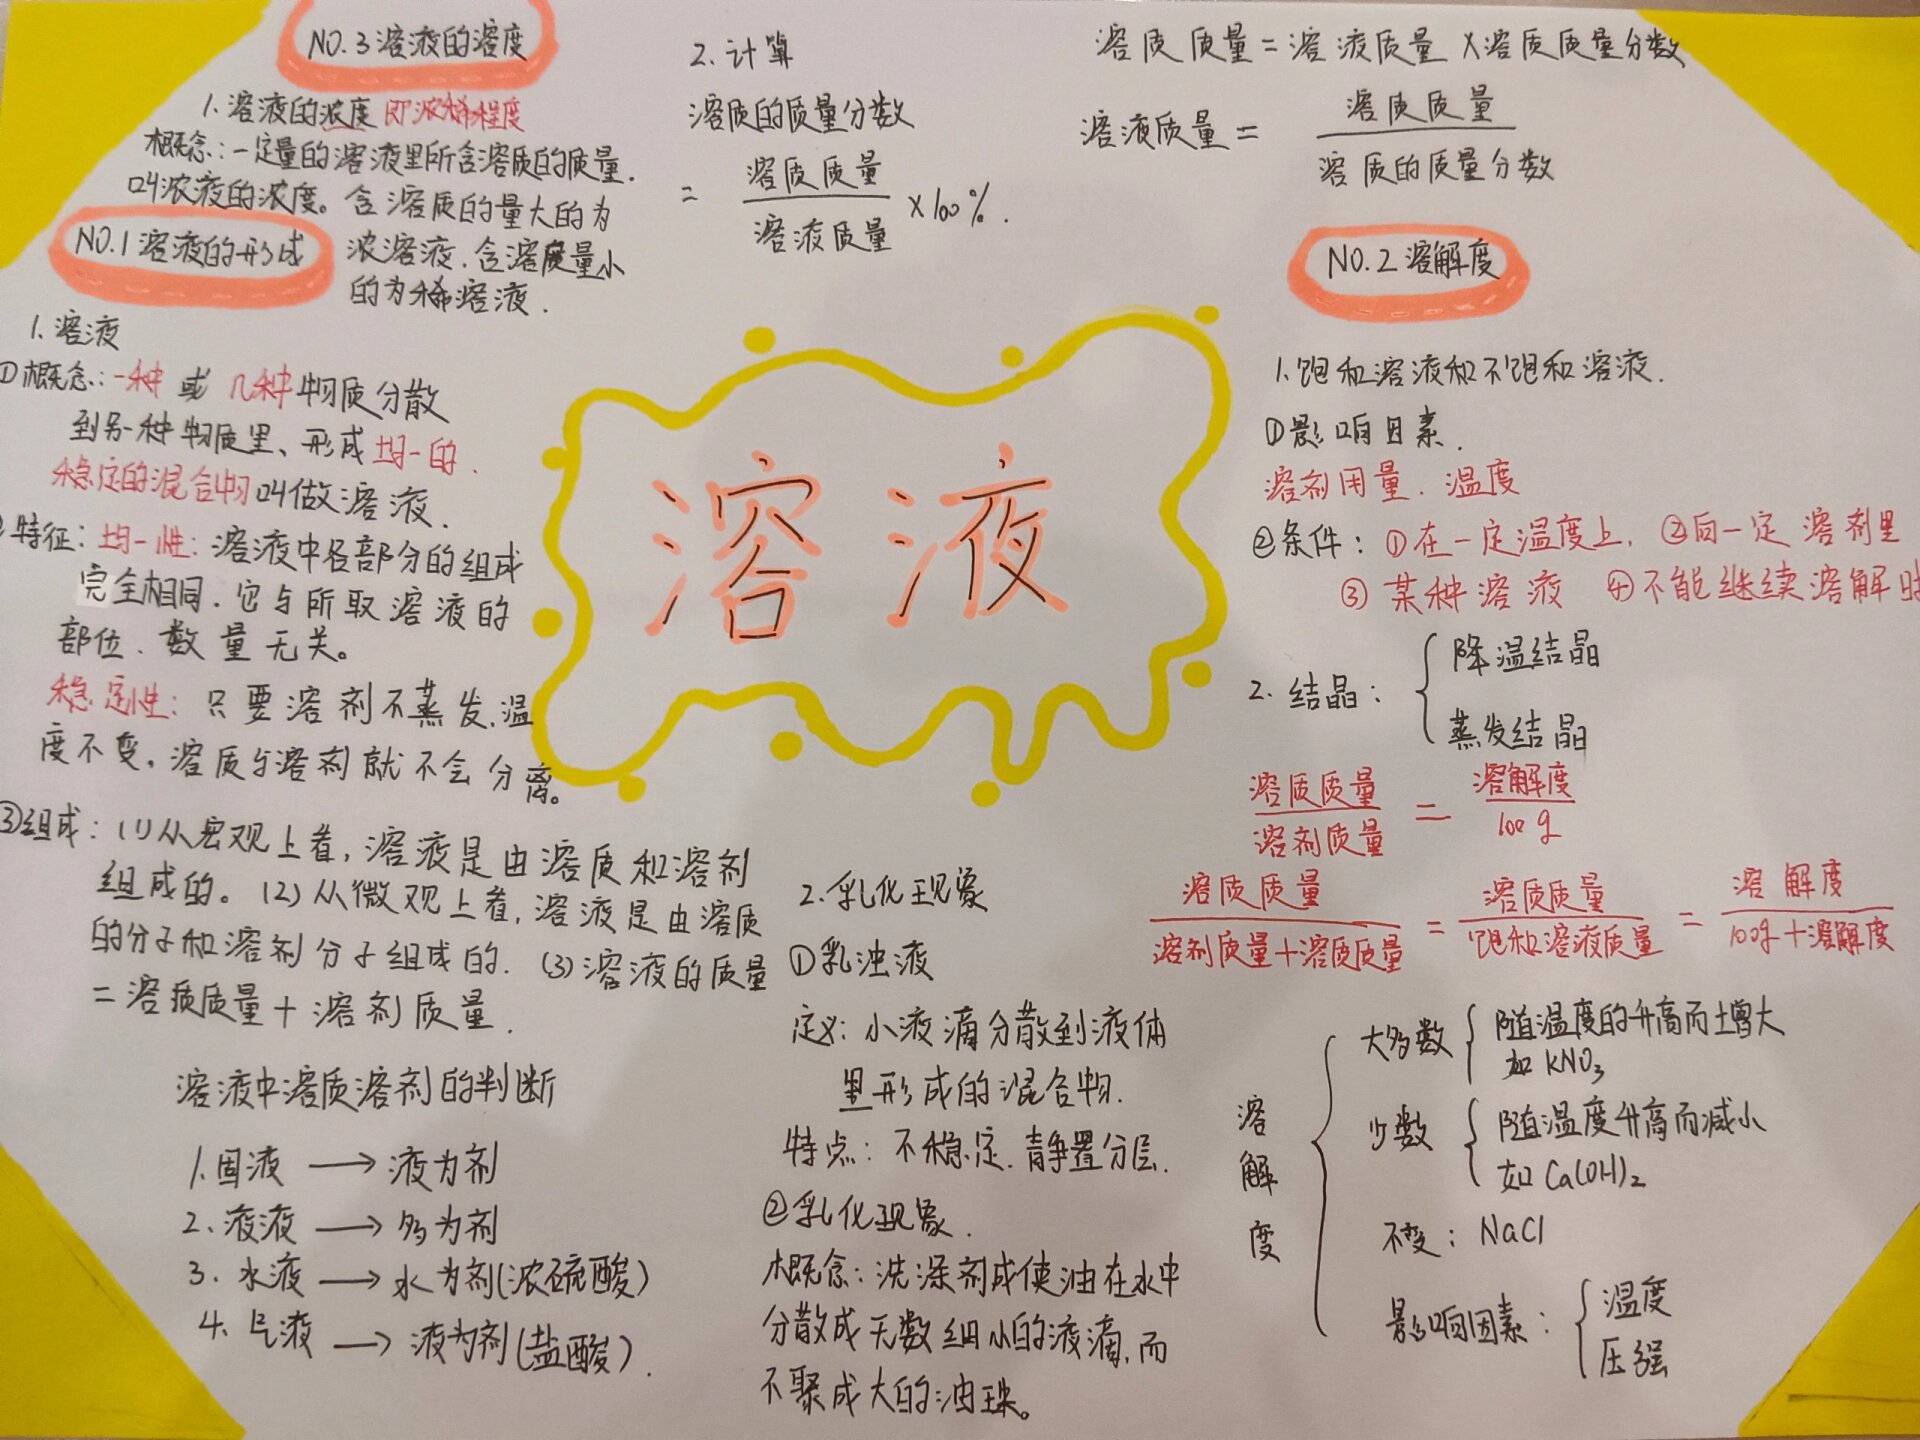 NO.3 溶液的溶度
1. 溶液的浓度 即浓稀程度
概念:一定量的溶液里所含溶质的质量.
叫浓液的浓度。含溶质的量大的为
浓溶液.含溶质量小
的为稀溶液.
2. 计算
溶质的质量分数
= 溶质质量 / 溶液质量 ×100%.
溶质质量=溶液质量×溶质质量分数
溶液质量= 溶质质量 / 溶质的质量分数
NO.1 溶液的形成
1. 溶液
①概念:一种 或 几种物质分散
到另一种物质里、形成均一的.
稳定的混合物叫做溶液.
特征:均一性:溶液中各部分的组成
完全相同.它与所取溶液的
部位.数量无关。
稳定性:只要溶剂不蒸发,温
度不变,溶质与溶剂就不会分离。
③组成:(1)从宏观上看,溶液是由溶质和溶剂
组成的。(2)从微观上看,溶液是由溶质
的分子和溶剂分子组成的.(3)溶液的质量
=溶质质量+溶剂质量.
溶液中溶质溶剂的判断
1.固液 → 液为剂
2.液液 → 多为剂
3.水液 → 水为剂(浓硫酸)
4.气液 → 液为剂(盐酸).
溶液
2.乳化现象
①乳浊液
定义:小液滴分散到液体
里形成的混合物.
特点:不稳定.静置分层.
②乳化现象.
概念:洗涤剂成使油在水中
分散成无数细小的液滴,而
不聚成大的油珠。
NO.2 溶解度
1.饱和溶液和不饱和溶液.
①影响因素.
溶剂用量.温度
②条件:①在一定温度上.②向一定溶剂里
③某种溶液 ④不能继续溶解时
2. 结晶:
降温结晶
蒸发结晶
溶质质量 / 溶剂质量 = 溶解度 / 100g
溶质质量 / 溶剂质量+溶质质量 = 溶质质量 / 饱和溶液质量 = 溶解度 / 100g+溶解度
溶解度
大多数 随温度的升高而增大
如 KNO₃
少数 随温度升高而减小
如 Ca(OH)₂
不变:NaCl
影响因素:
温度
压强